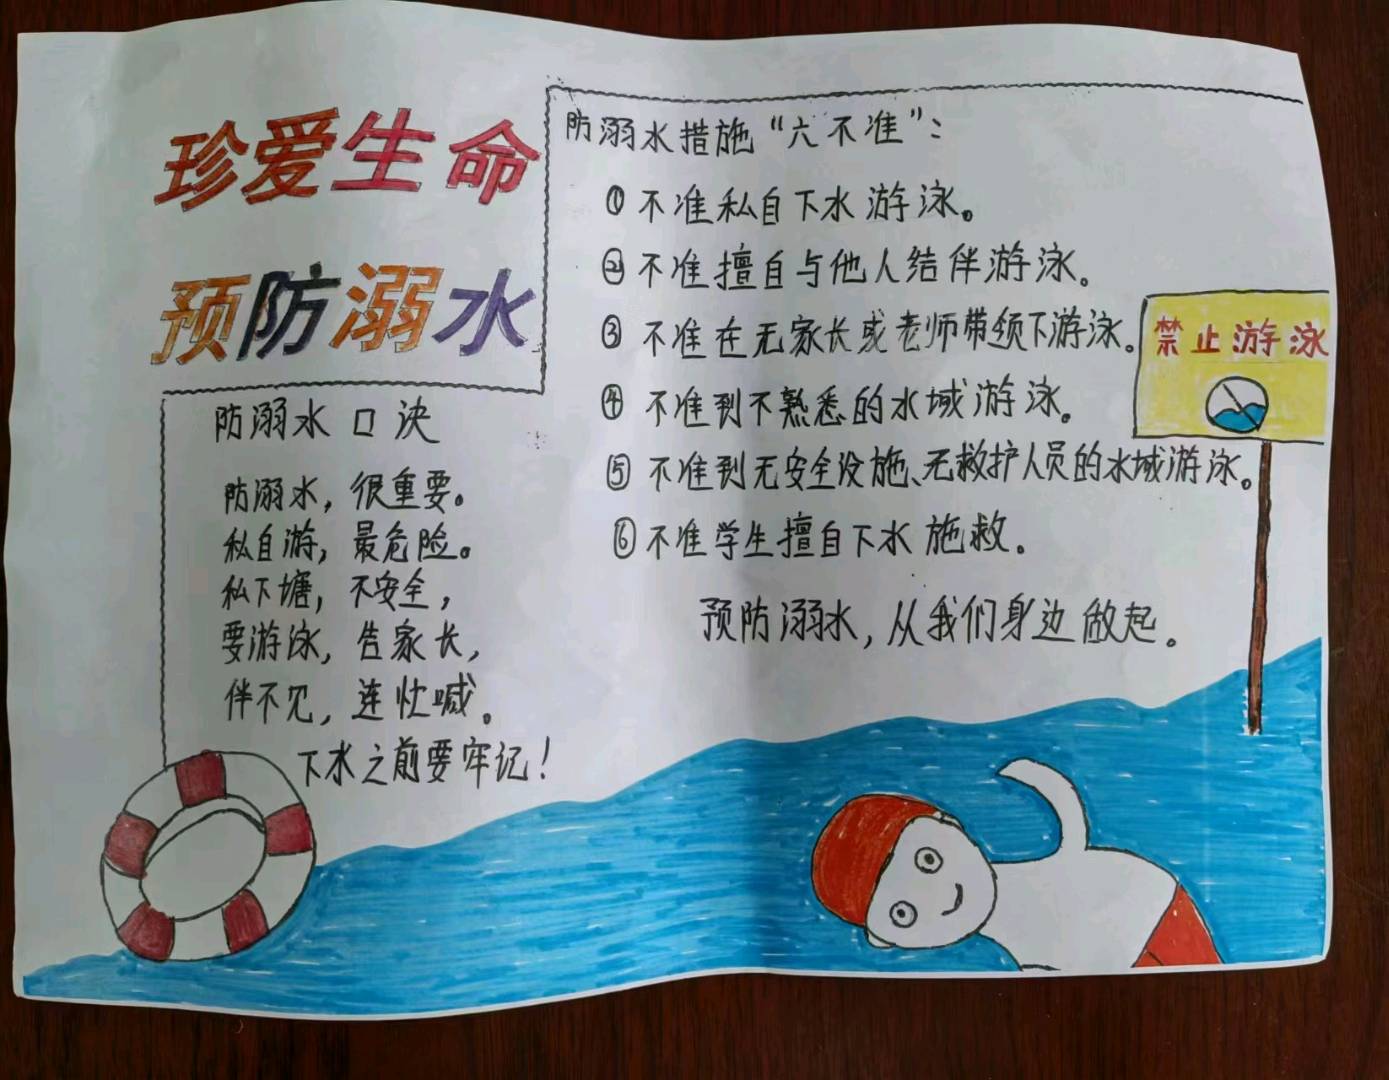 珍爱生命
预防溺水
防溺水口决
防溺水，很重要。
私自游，最危险。
私下塘，不安全，
要游泳，告家长，
伴不见，连忙喊。
下水之前要牢记！
防溺水措施“六不准”：
①不准私自下水游泳。
②不准擅自与他人结伴游泳。
③不准在无家长或老师带领下游泳。
④不准到不熟悉的水域游泳。
⑤不准到无安全设施、无救护人员的水域游泳。
⑥不准学生擅自下水施救。
预防溺水，从我们身边做起。
禁止游泳